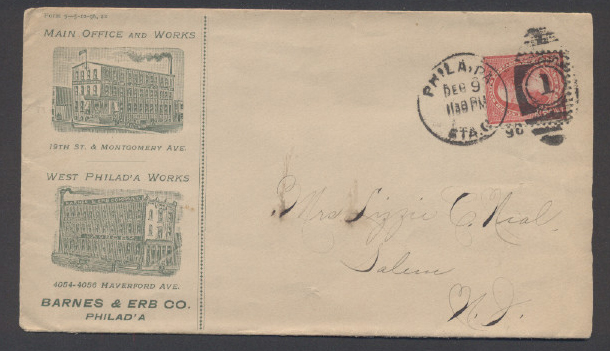 MAIN OFFICE AND WORKS
19TH ST. & MONTGOMERY AVE.
WEST PHILAD'A WORKS
4054-4056 HAVERFORD AVE.
BARNES & ERB CO.
PHILAD'A
PHILA, PA.
DEC 9
PM
STA.
96
1
Mrs Lizzie C. Nial.
Salem
N. J.